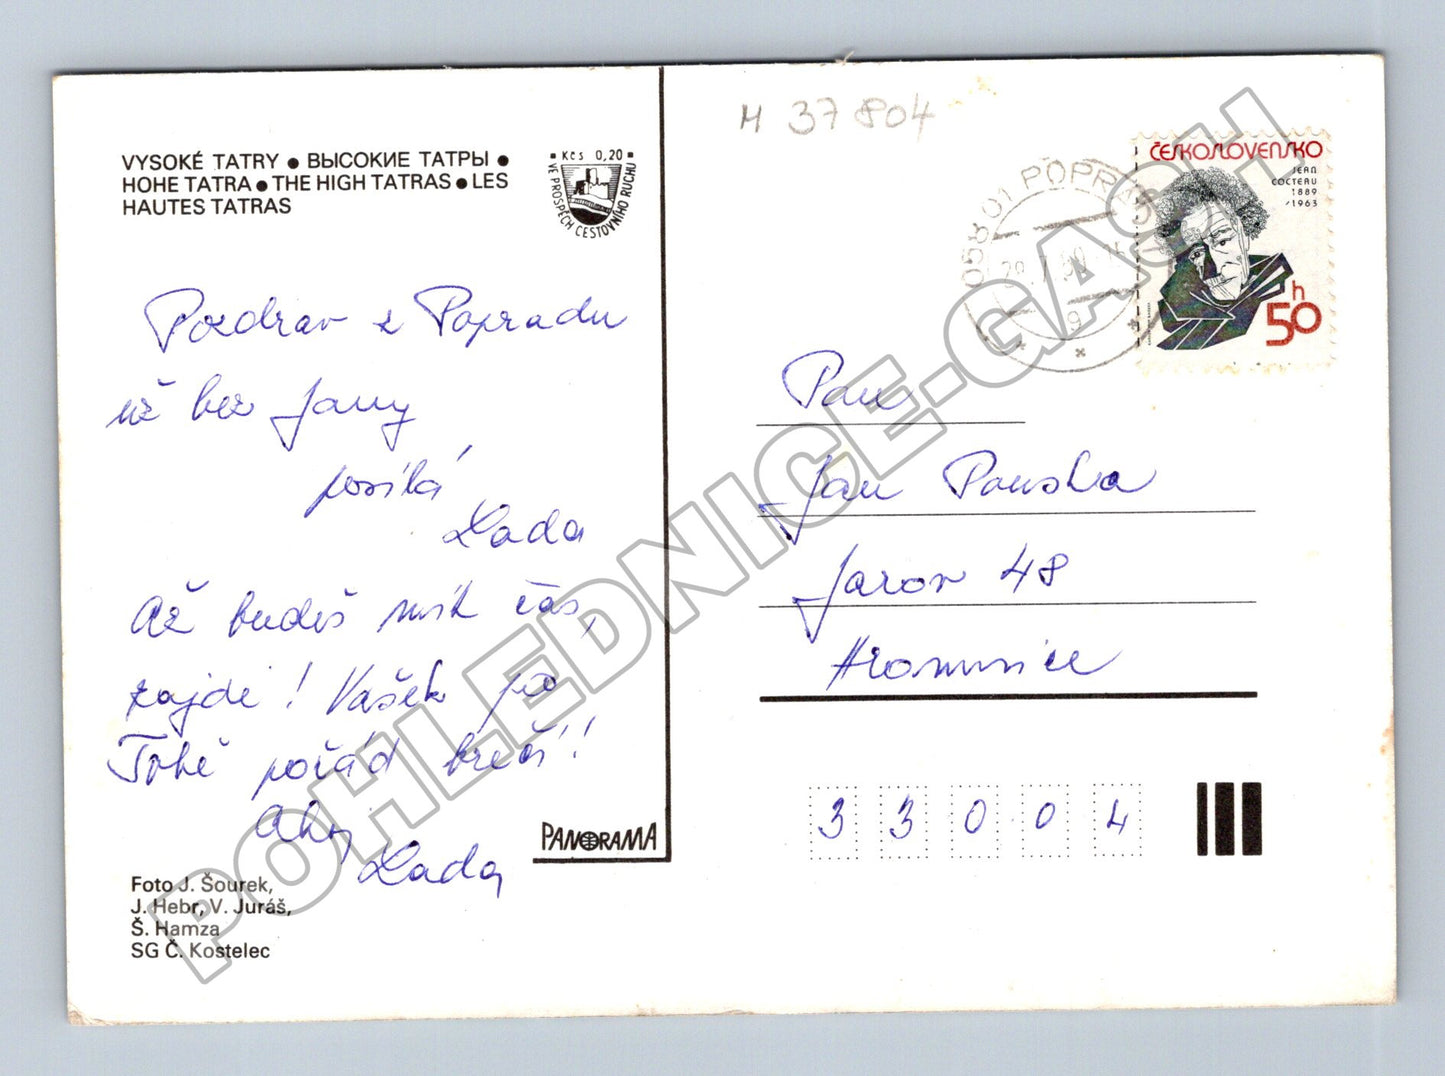 VYSOKÉ TATRY ● ВЫСОКИЕ ТАТРЫ ●
HOHE TATRA ● THE HIGH TATRAS ● LES
HAUTES TATRAS
Kčs 0,20
VE PROSPĚCH CESTOVNÍHO RUCHU
Pozdrav z Popradu
už bez Jany
posílá
Lada
Až budeš mít čas,
zajdi! Vašek po
Tobě pořád brečí!!
Ahoj
Lada
PANORAMA
Foto J. Šourek,
J. Hebr, V. Juráš,
Š. Hamza
SG Č. Kostelec
M 37804
058 01 POPRAD
ČESKOSLOVENSKO
JEAN
COCTEAU
1889
/1963
50h
Pan
Jan Pouska
Jarov 48
33004
POHLEDNICE-GASH